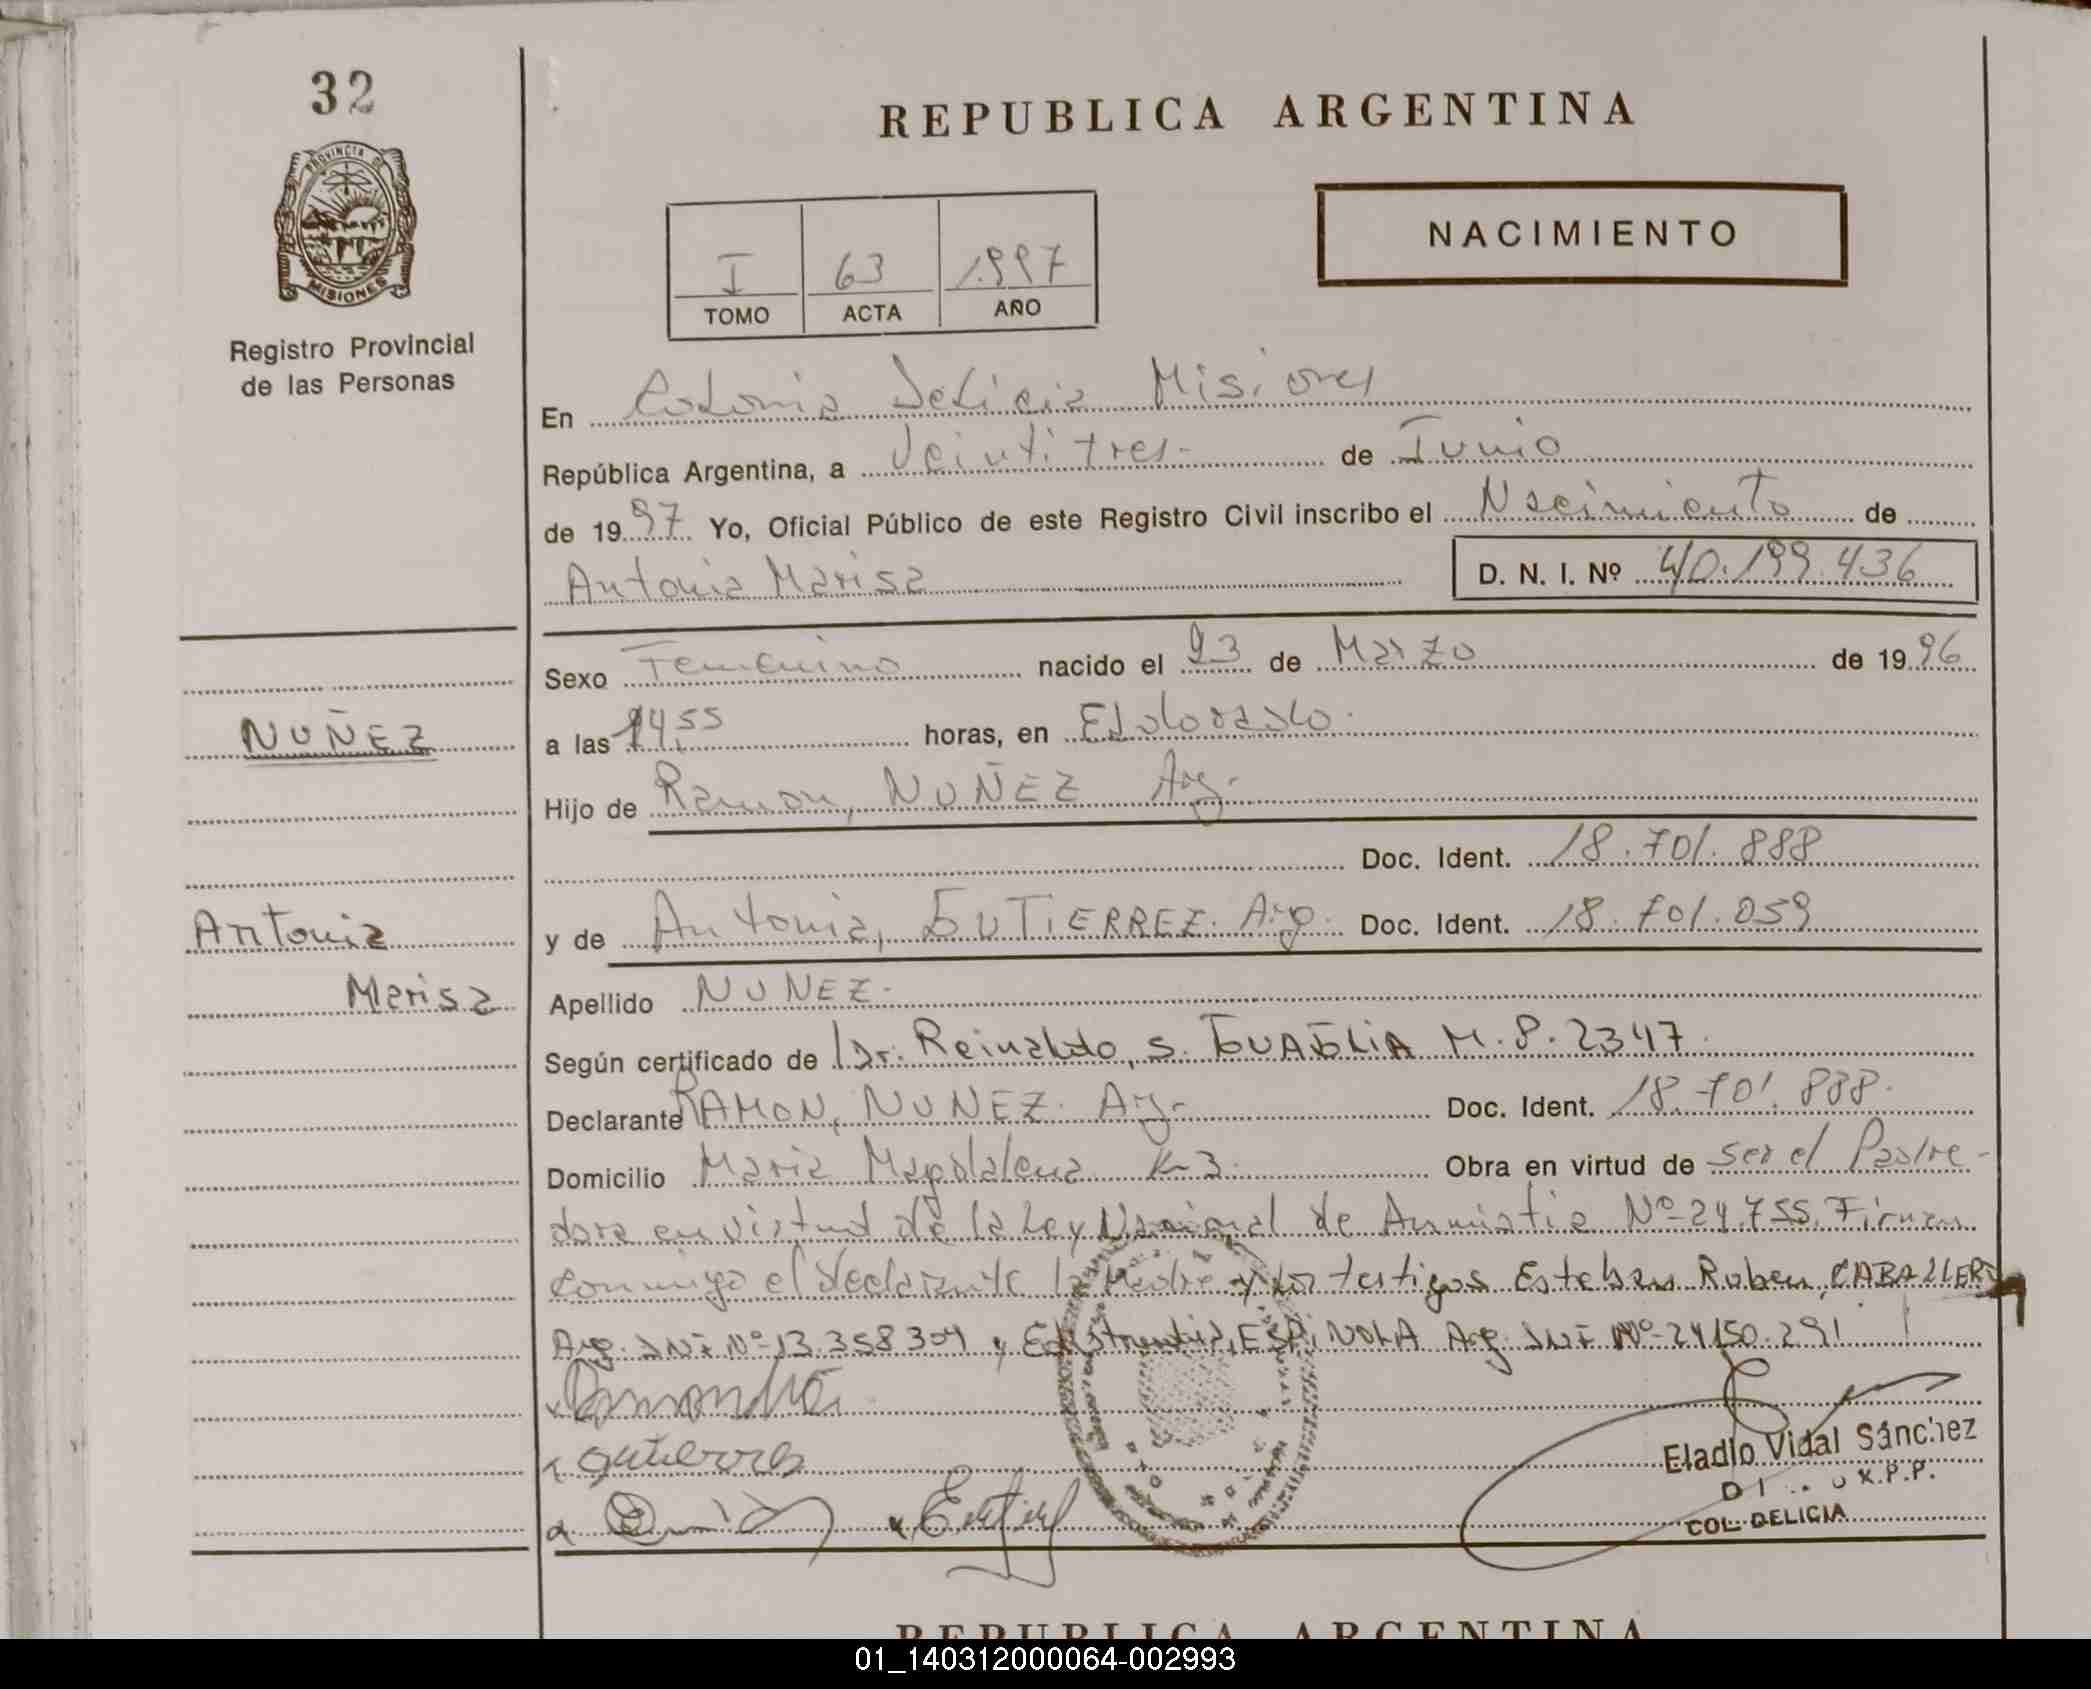 32
REPUBLICA ARGENTINA
PROVINCIA DE
MISIONES
NACIMIENTO
I 63 1997
TOMO ACTA AÑO
Registro Provincial
de las Personas
En Colonia Delicia Misiones
República Argentina, a Veintitres- de Junio
de 1997 Yo, Oficial Público de este Registro Civil inscribo el Nacimiento de
Antonia Marisa D. N. I. Nº 40.199.436
Sexo Femenino nacido el 23 de Marzo de 1996
NUÑEZ
a las 14,55 horas, en Eldorado.
Hijo de Ramon, NUÑEZ Arg.
Doc. Ident. 18.701.888
Antonia
y de Antonia, GUTIERREZ. Arg. Doc. Ident. 18.701.059
Marisa
Apellido NUÑEZ.
Según certificado de Dr. Reinaldo, S. GUAGLIA M.P. 2347
Declarante RAMON, NUÑEZ. Arg. Doc. Ident. 18.701.888.
Domicilio Maria Magdalena K-3. Obra en virtud de ser el Padre-
dora en virtud de la Ley Nacional de Amnistia Nº-24.755. Firman
conmigo el declarante la Madre y los testigos Esteban Ruben, CABALLERO
Arg. DNI Nº-13.358.304 y ESPINOLA Arg. DNI Nº-24.150.291
Gutierres
Eladio Vidal Sánchez
R.P.P.
COL. DELICIA
REPUBLICA ARGENTINA
01_140312000064-002993